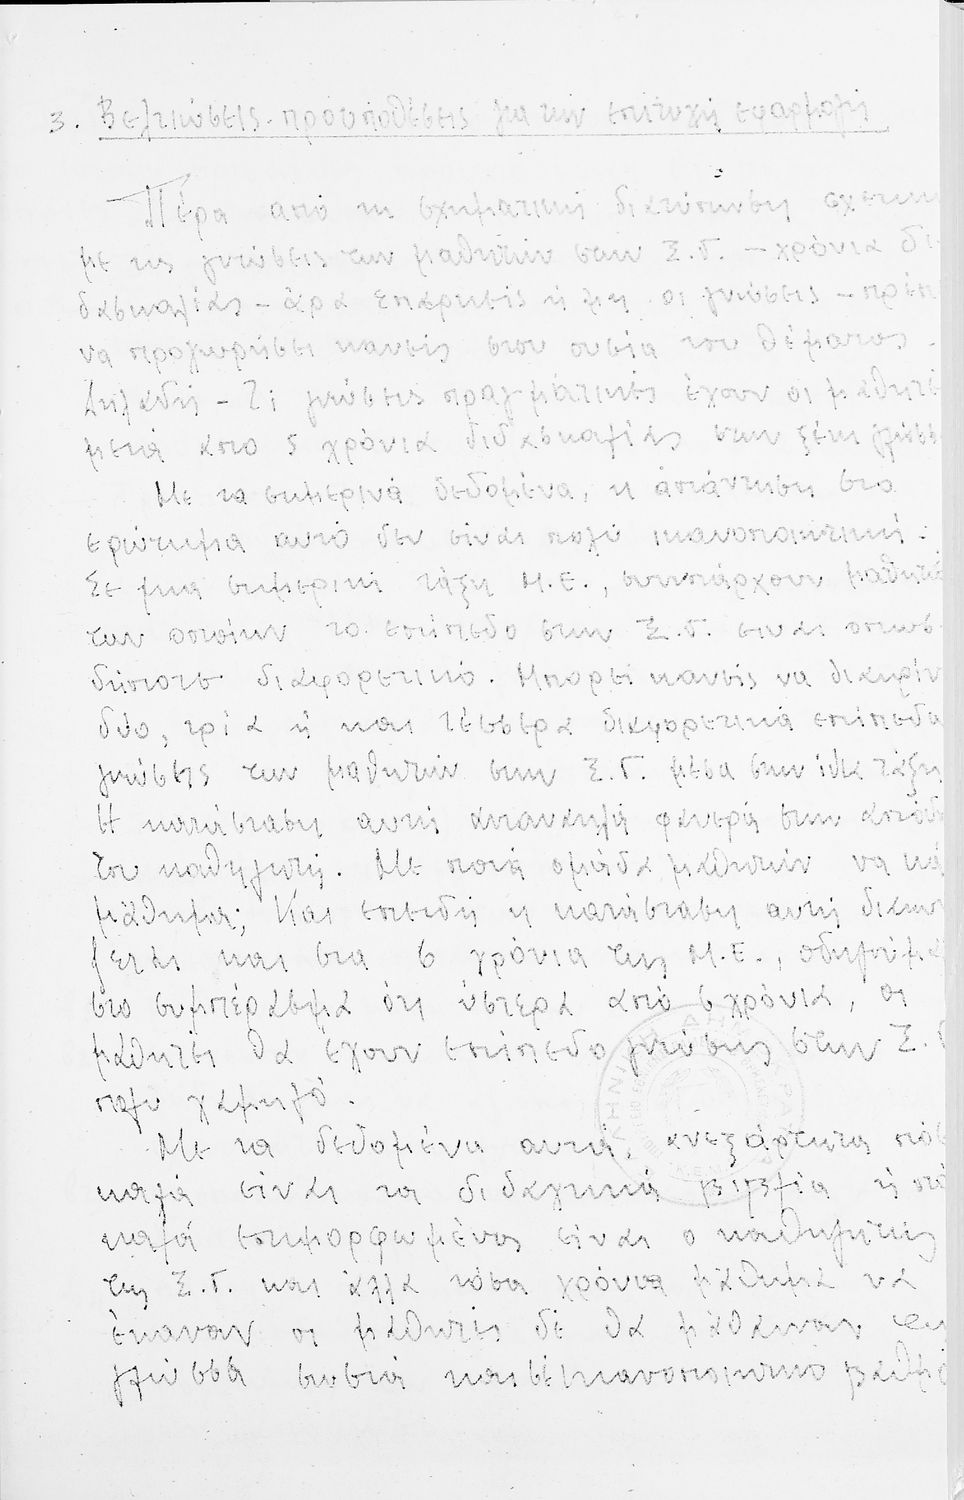 3. Βελτιώσεις - προϋποθέσεις για την επιτυχή εφαρμογή
Πέρα από τη σχηματική διατύπωση σχετικ
με τις γνώσεις των μαθητών στην Ξ.Γ. - χρόνια δι
δασκαλίας - άρα επαρκείς ή μη οι γνώσεις - πρέπ
να προχωρήσει κανείς στην ουσία του θέματος.
Δηλαδή - Τι γνώσεις πραγματικές έχουν οι μαθητέ
μετά από 5 χρόνια διδασκαλίας στην ξένη γλώσσ
Με τα σημερινά δεδομένα, η απάντηση στο
ερώτημα αυτό δεν είναι πολύ ικανοποιητική.
Σε μια σημερινή τάξη Μ.Ε., συνυπάρχουν μαθητέ
των οποίων το επίπεδο στην Ξ.Γ. είναι οπωσ
δήποτε διαφορετικό. Μπορεί κανείς να διακρίν
δύο, τρία ή και τέσσερα διαφορετικά επίπεδα
γνώσεις των μαθητών στην Ξ.Γ. μέσα στην ίδια τάξη
Η κατάσταση αυτή αντανακλά φανερά στην απόδ
του καθηγητή. Με ποιά ομάδα μαθητών να κά
μάθημα; Και επειδή η κατάσταση αυτή διαιων
ζεται και στα 6 χρόνια της Μ.Ε., οδηγούμα
στο συμπέρασμα ότι ύστερα από 6 χρόνια, οι
μαθητές θα έχουν επίπεδο γνώσης στην Ξ.Γ
πολύ χαμηλό.
Με τα δεδομένα αυτά, ανεξάρτητα πόσ
καλά είναι τα διδακτικά βιβλία ή πό
καλά επιμορφωμένος είναι ο καθηγητής
της Ξ.Γ. και άλλα τόσα χρόνια μάθημα να
έκαναν οι μαθητές δε θα μάθαιναν
γλώσσα σωστά και σε ικανοποιητικό βαθμό